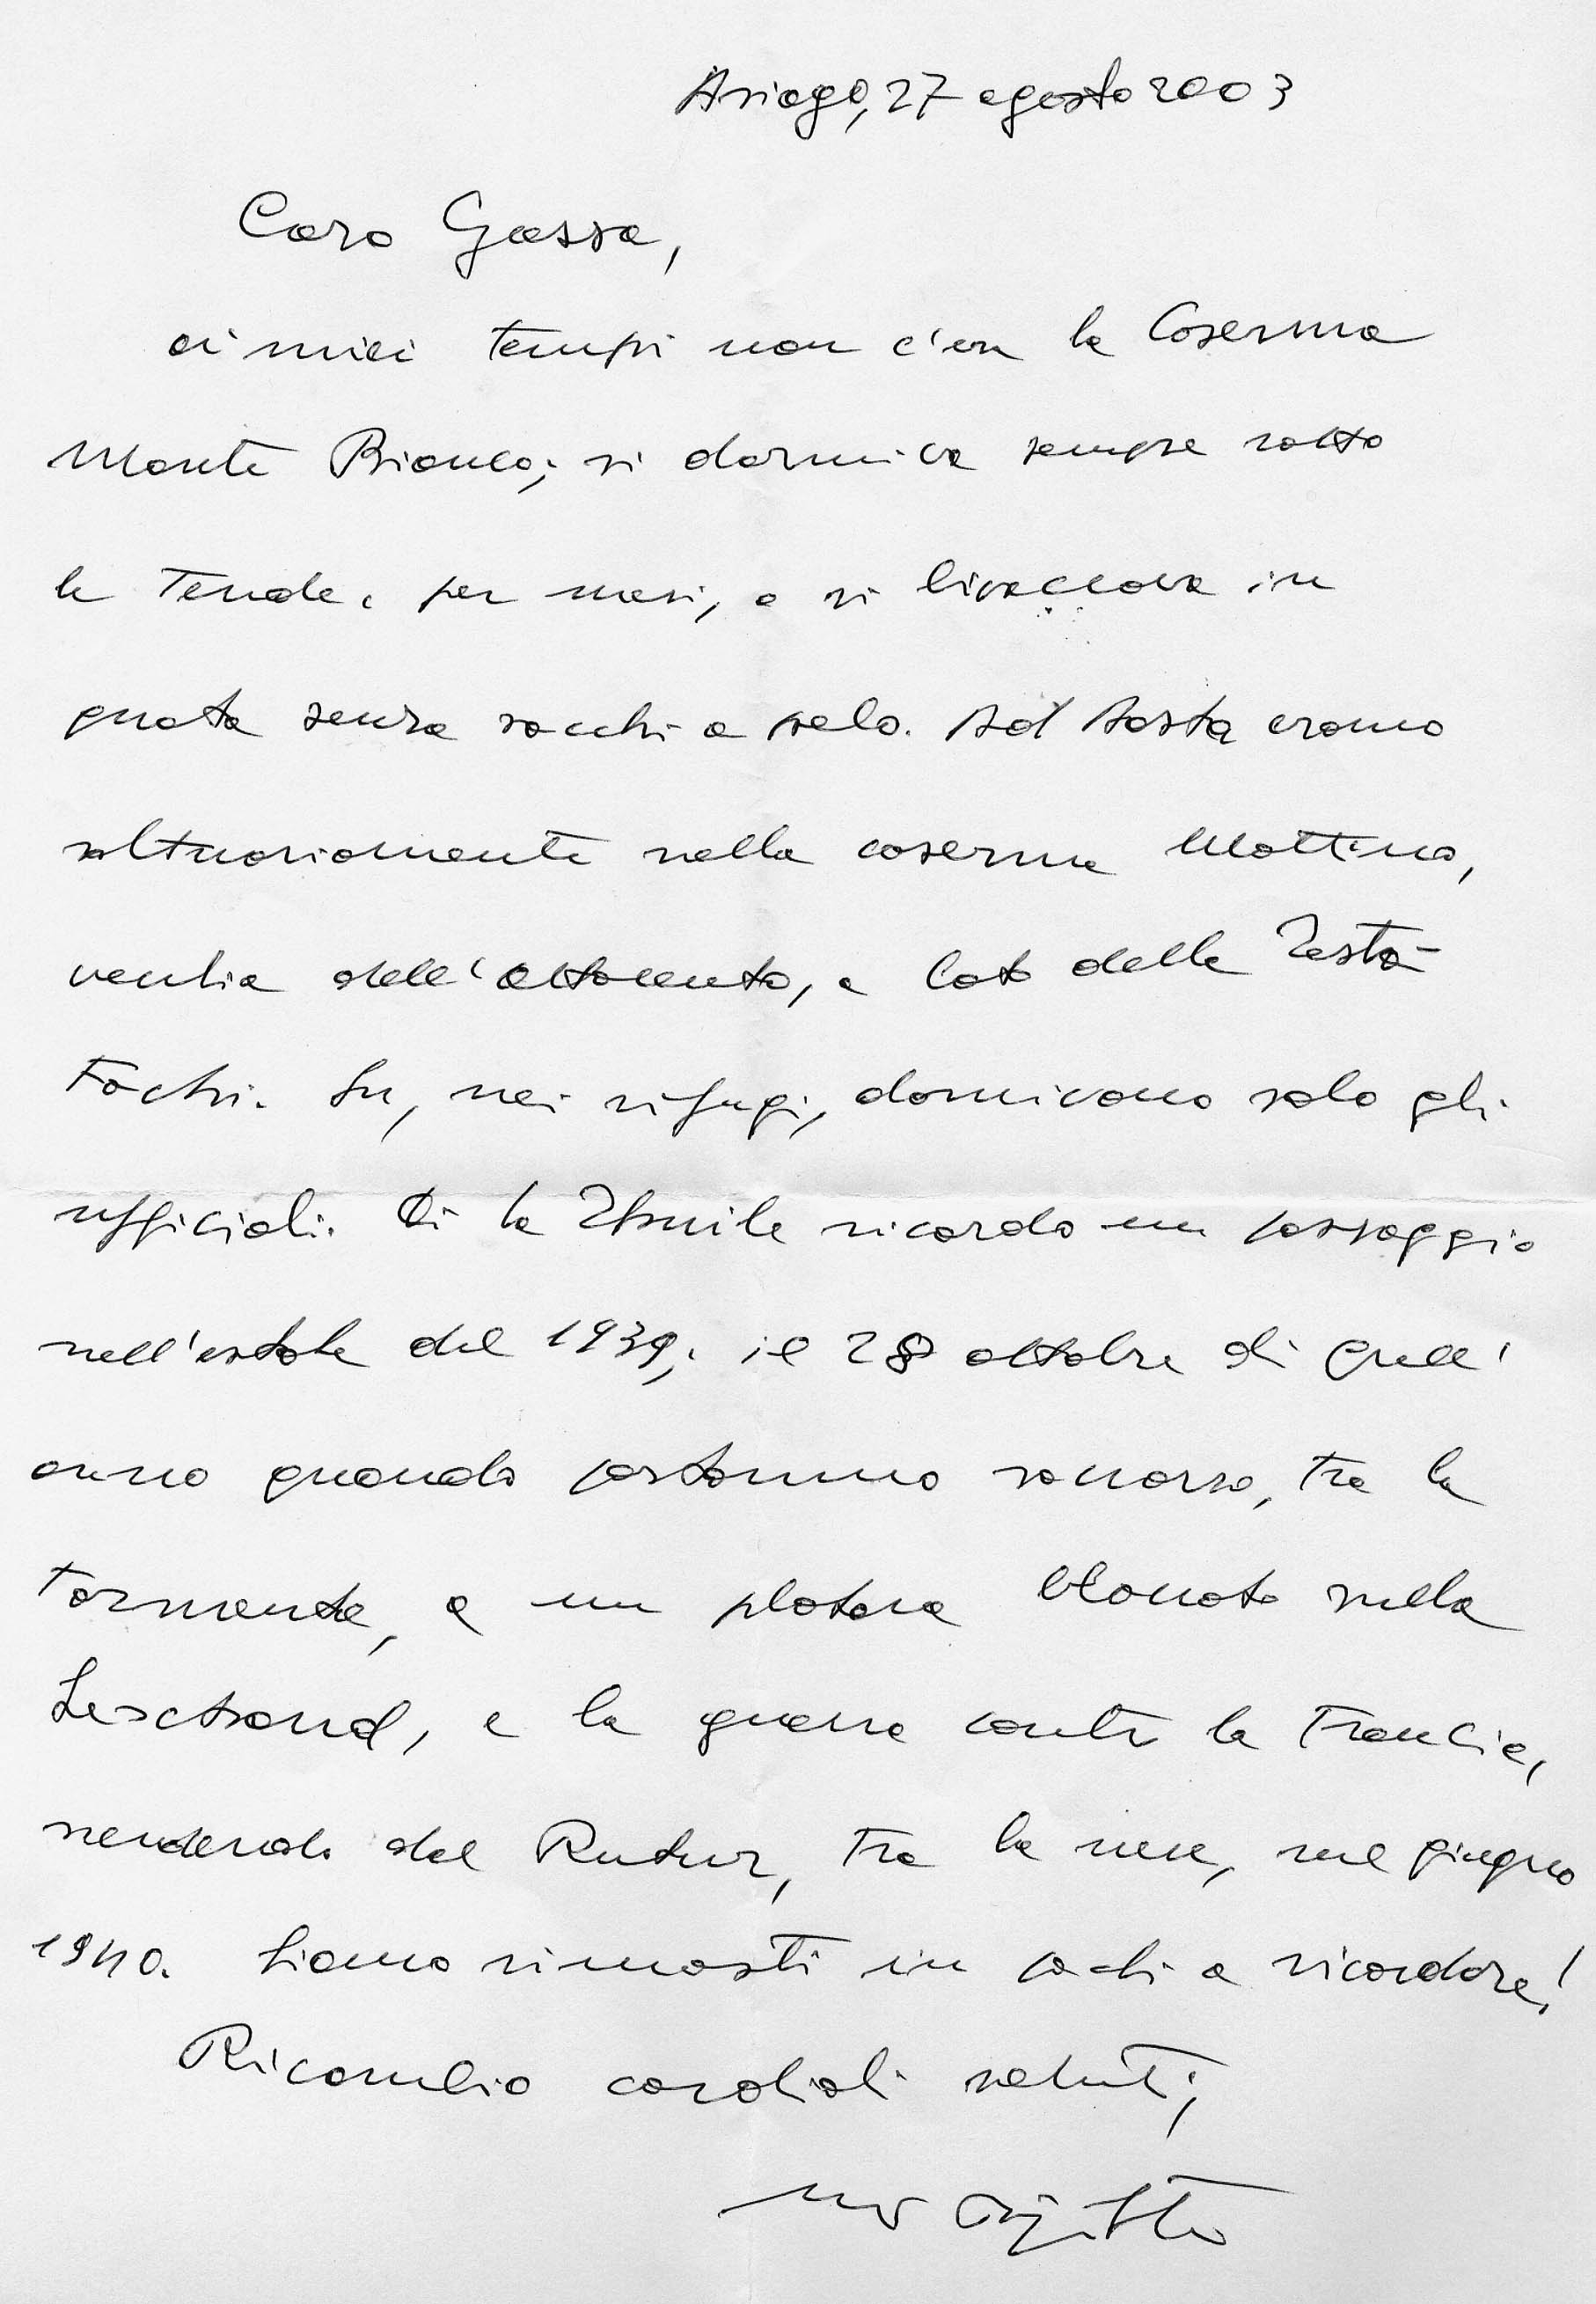 Asiago, 27 agosto 2003
Caro Gassa,
ai miei tempi non c'era la Caserma
Monte Bianco; si dormiva sempre sotto
le tende, per mesi, e si bivaccava in
quota senza sacchi a pelo. Ad Aosta eravamo
saltuariamente nella caserma Mottino,
vecchia dell'ottocento, e lato della Testa-
Fochi. Su, nei rifugi, dormivano solo gli
ufficiali. Di La Thuile ricordo un passaggio
nell'estate del 1939; il 28 ottobre di quell'
anno quando portammo soccorso, tra la
tormenta, a un plotone bloccato sulla
e la guerra contro la Francia,
scendendo dal Rutor, tra la neve, nel giugno
1940. Siamo rimasti in pochi a ricordare!
Ricambio cordiali saluti,